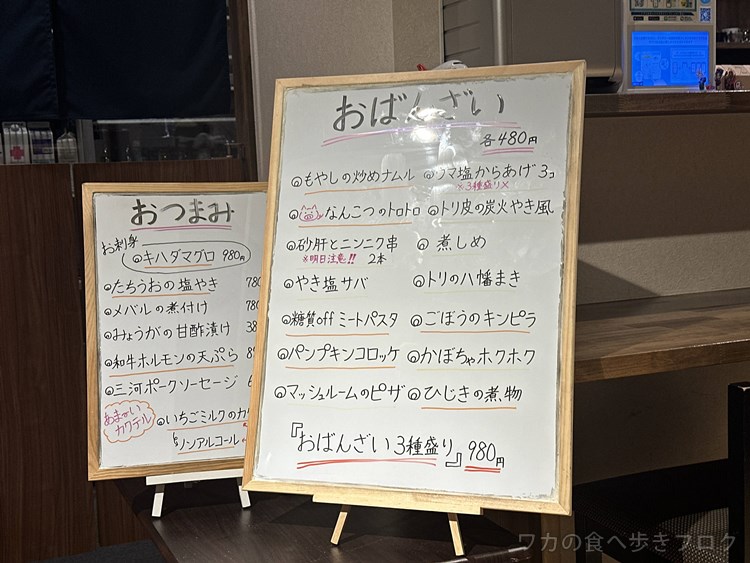 おつまみ
お刺身
キハダマグロ 980円
たちうおの塩やき 780
メバルの煮付け 780
みょうがの甘酢漬け 38
和牛ホルモンの天ぷら 8
三河ポークソーセージ
あまーい
カクテル
いちごミルクのカ
ノンアルコール
おばんざい
各480円
もやしの炒めナムル
ツマ塩からあげ 3コ
※3種盛り×
なんこつのトロトロ
トリ皮の炭火やき風
砂肝とニンニク串
※明日注意!! 2本
煮しめ
やき塩サバ
トリの八幡まき
糖質offミートパスタ
ごぼうのキンピラ
パンプキンコロッケ
かぼちゃホクホク
マッシュルームのピザ
ひじきの煮物
『おばんざい3種盛り』980円
ワカの食べ歩きブログ